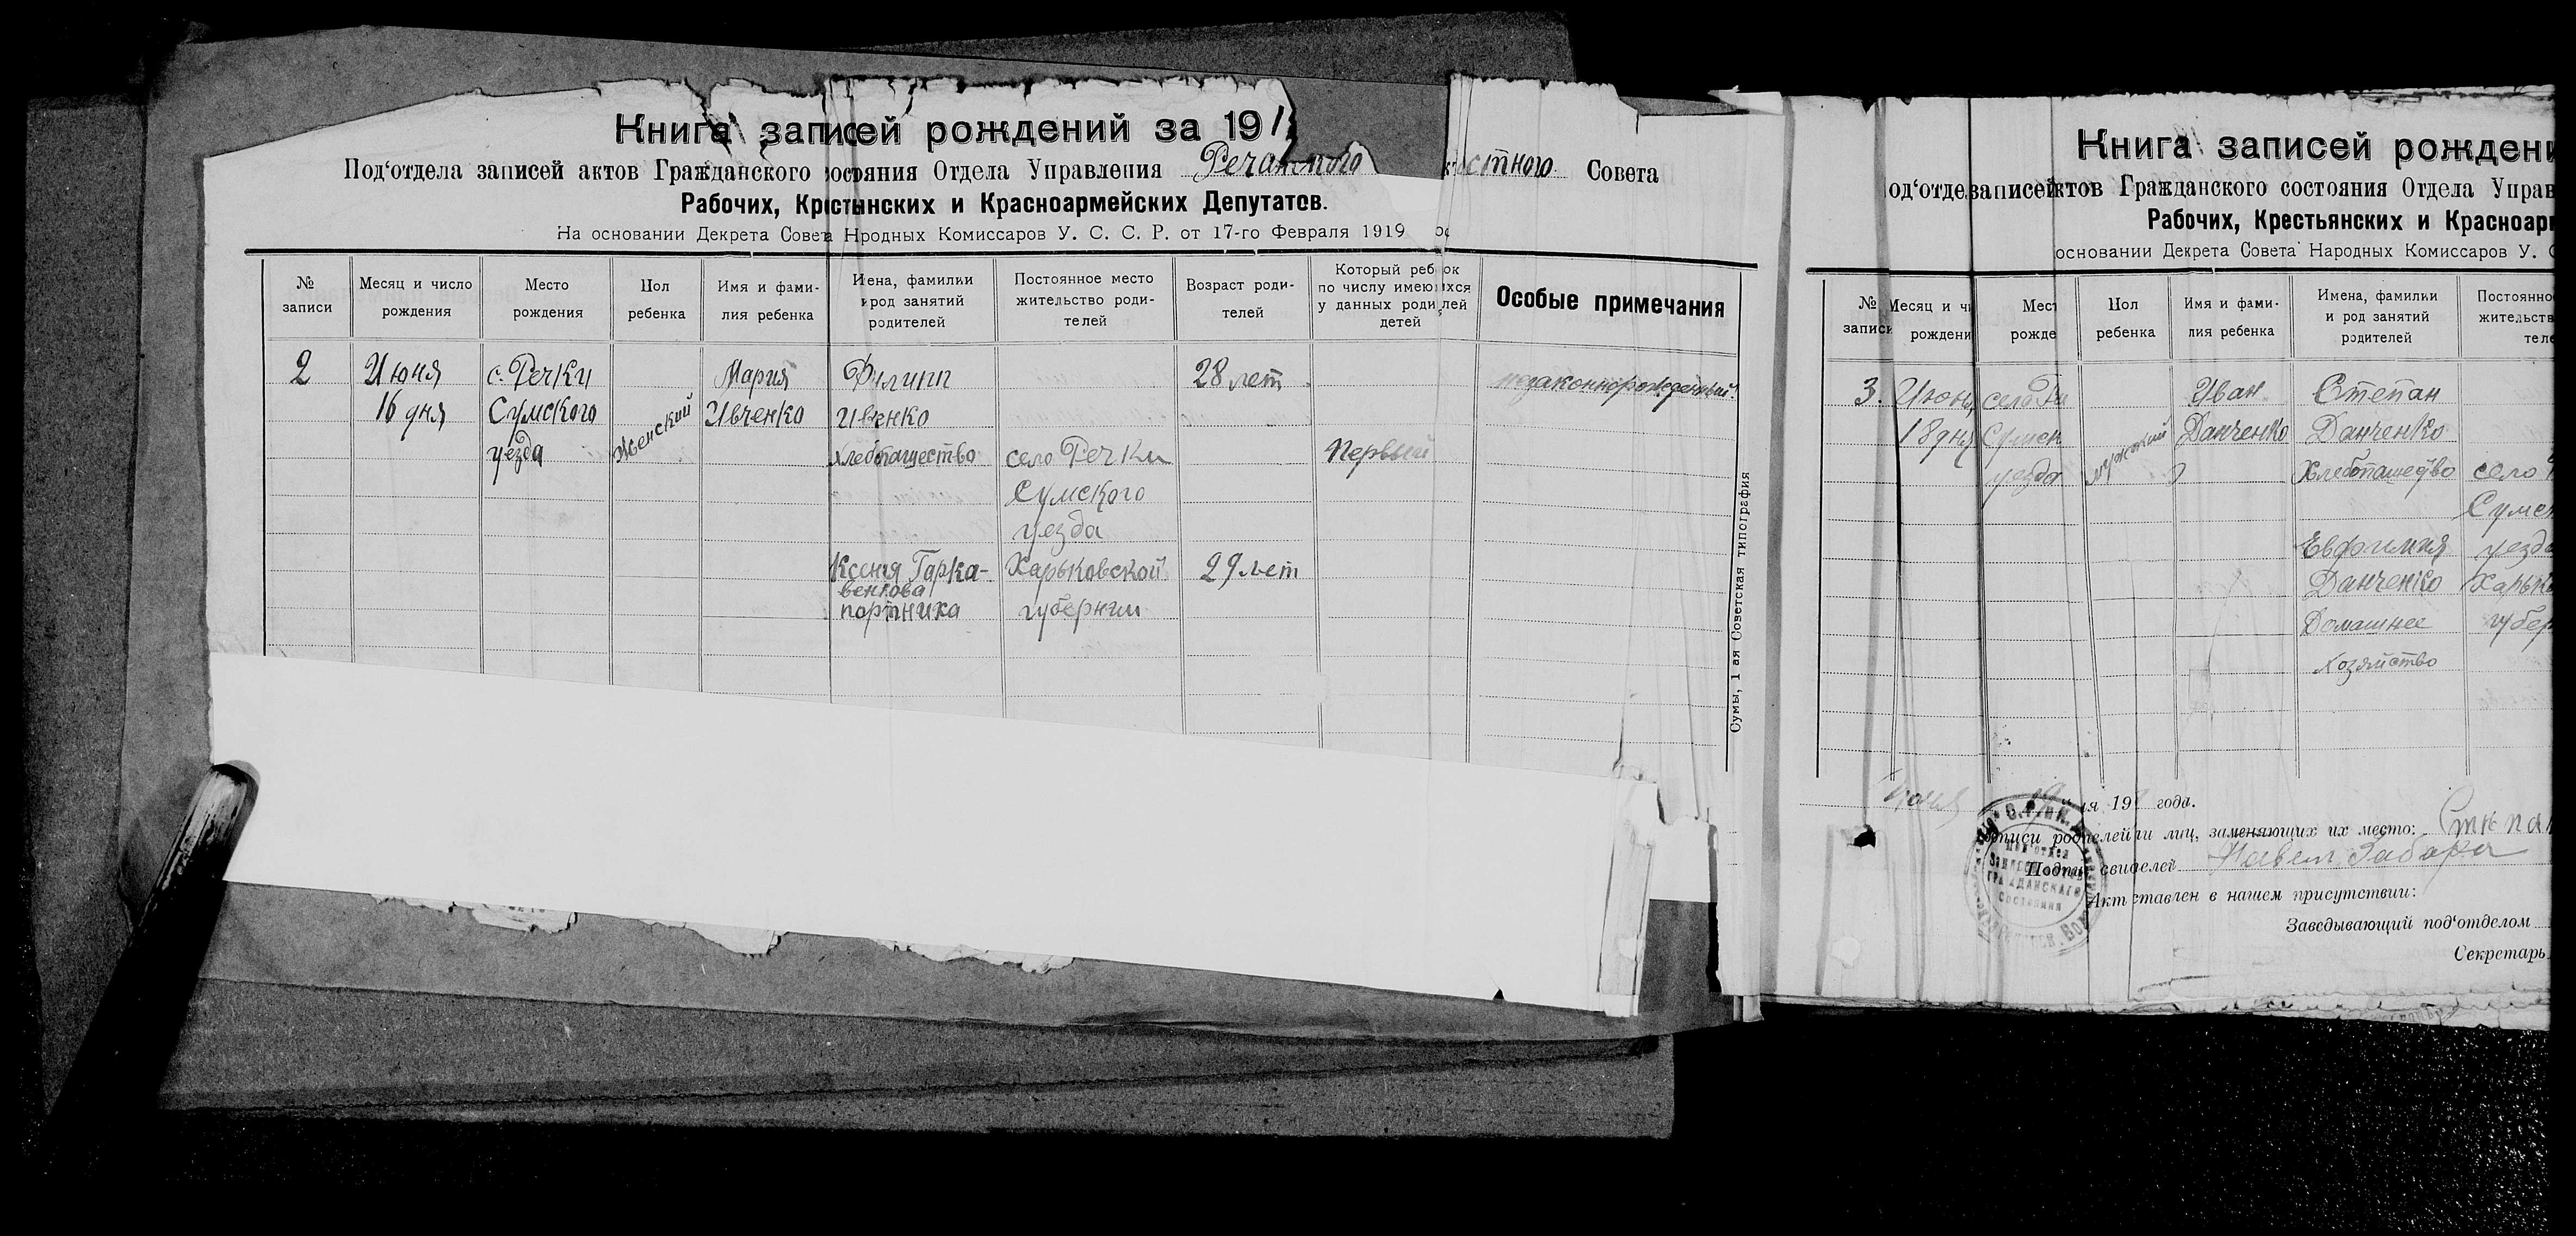 Книга записей рождений за 191
Под‘отдела записей актов Гражданского состояния Отдела Управления Речанского остного Совета
Рабочих, Крстынских и Красноармейских Депутатов.
На основании Декрета Совета Нродных Комиссаров У. С. С. Р. от 17-го Февраля 1919
№ записи
Месяц и число рождения
Место рождения
Пол ребенка
Имя и фами-
лия ребенка
Иена, фамилии
и род занятий
родителей
Постоянное место
жительство роди-
телей
Возраст роди-
телей
Который ребок
по числу имеющихся
у данных родилей
детей
Особые примечания
2
Июня
16 дня
с. Речки
Сумского
уезда
Женский
Мария
Ивченко
Филипп
Ивенко
хлебопашество
село Речки
Сумского
уезда
28 лет
Первый
незаконнорожденный.
Ксения Гарка-
венкова
портниха
Харьковской
губернии
29 лет
Сумы, 1 ая Советская типография
Книга записей рождени
од‘отде записей ктов Гражданского состояния Отдела Управ
Рабочих, Крестьянских и Красноар
основании Декрета Совета Народных Комиссаров У. С
№
записи
Месяц и чи
рождени
Мест
рожде
Пол
ребенка
Имя и фами-
лия ребенка
Имена, фамилии
и род занятий
родителей
Постоянно
жительств
теле
3.
Июня
18 дня
село Ри
Сумск
уезда
мужской
Иван
Данченко
Степан
Данченко
Хлебопашедво
село
Сумск
Евфимия
Данченко
Домашнее
хозяйство
уезда
Харьк
губер
Июня 19 дня 191 года.
писи родителей ли лиц, заменяющих их место: Степан
Подпи свиделей Павел Забара
Акт ставлен в нашем присутствии:
Заведывающий под‘отделом
Секретарь